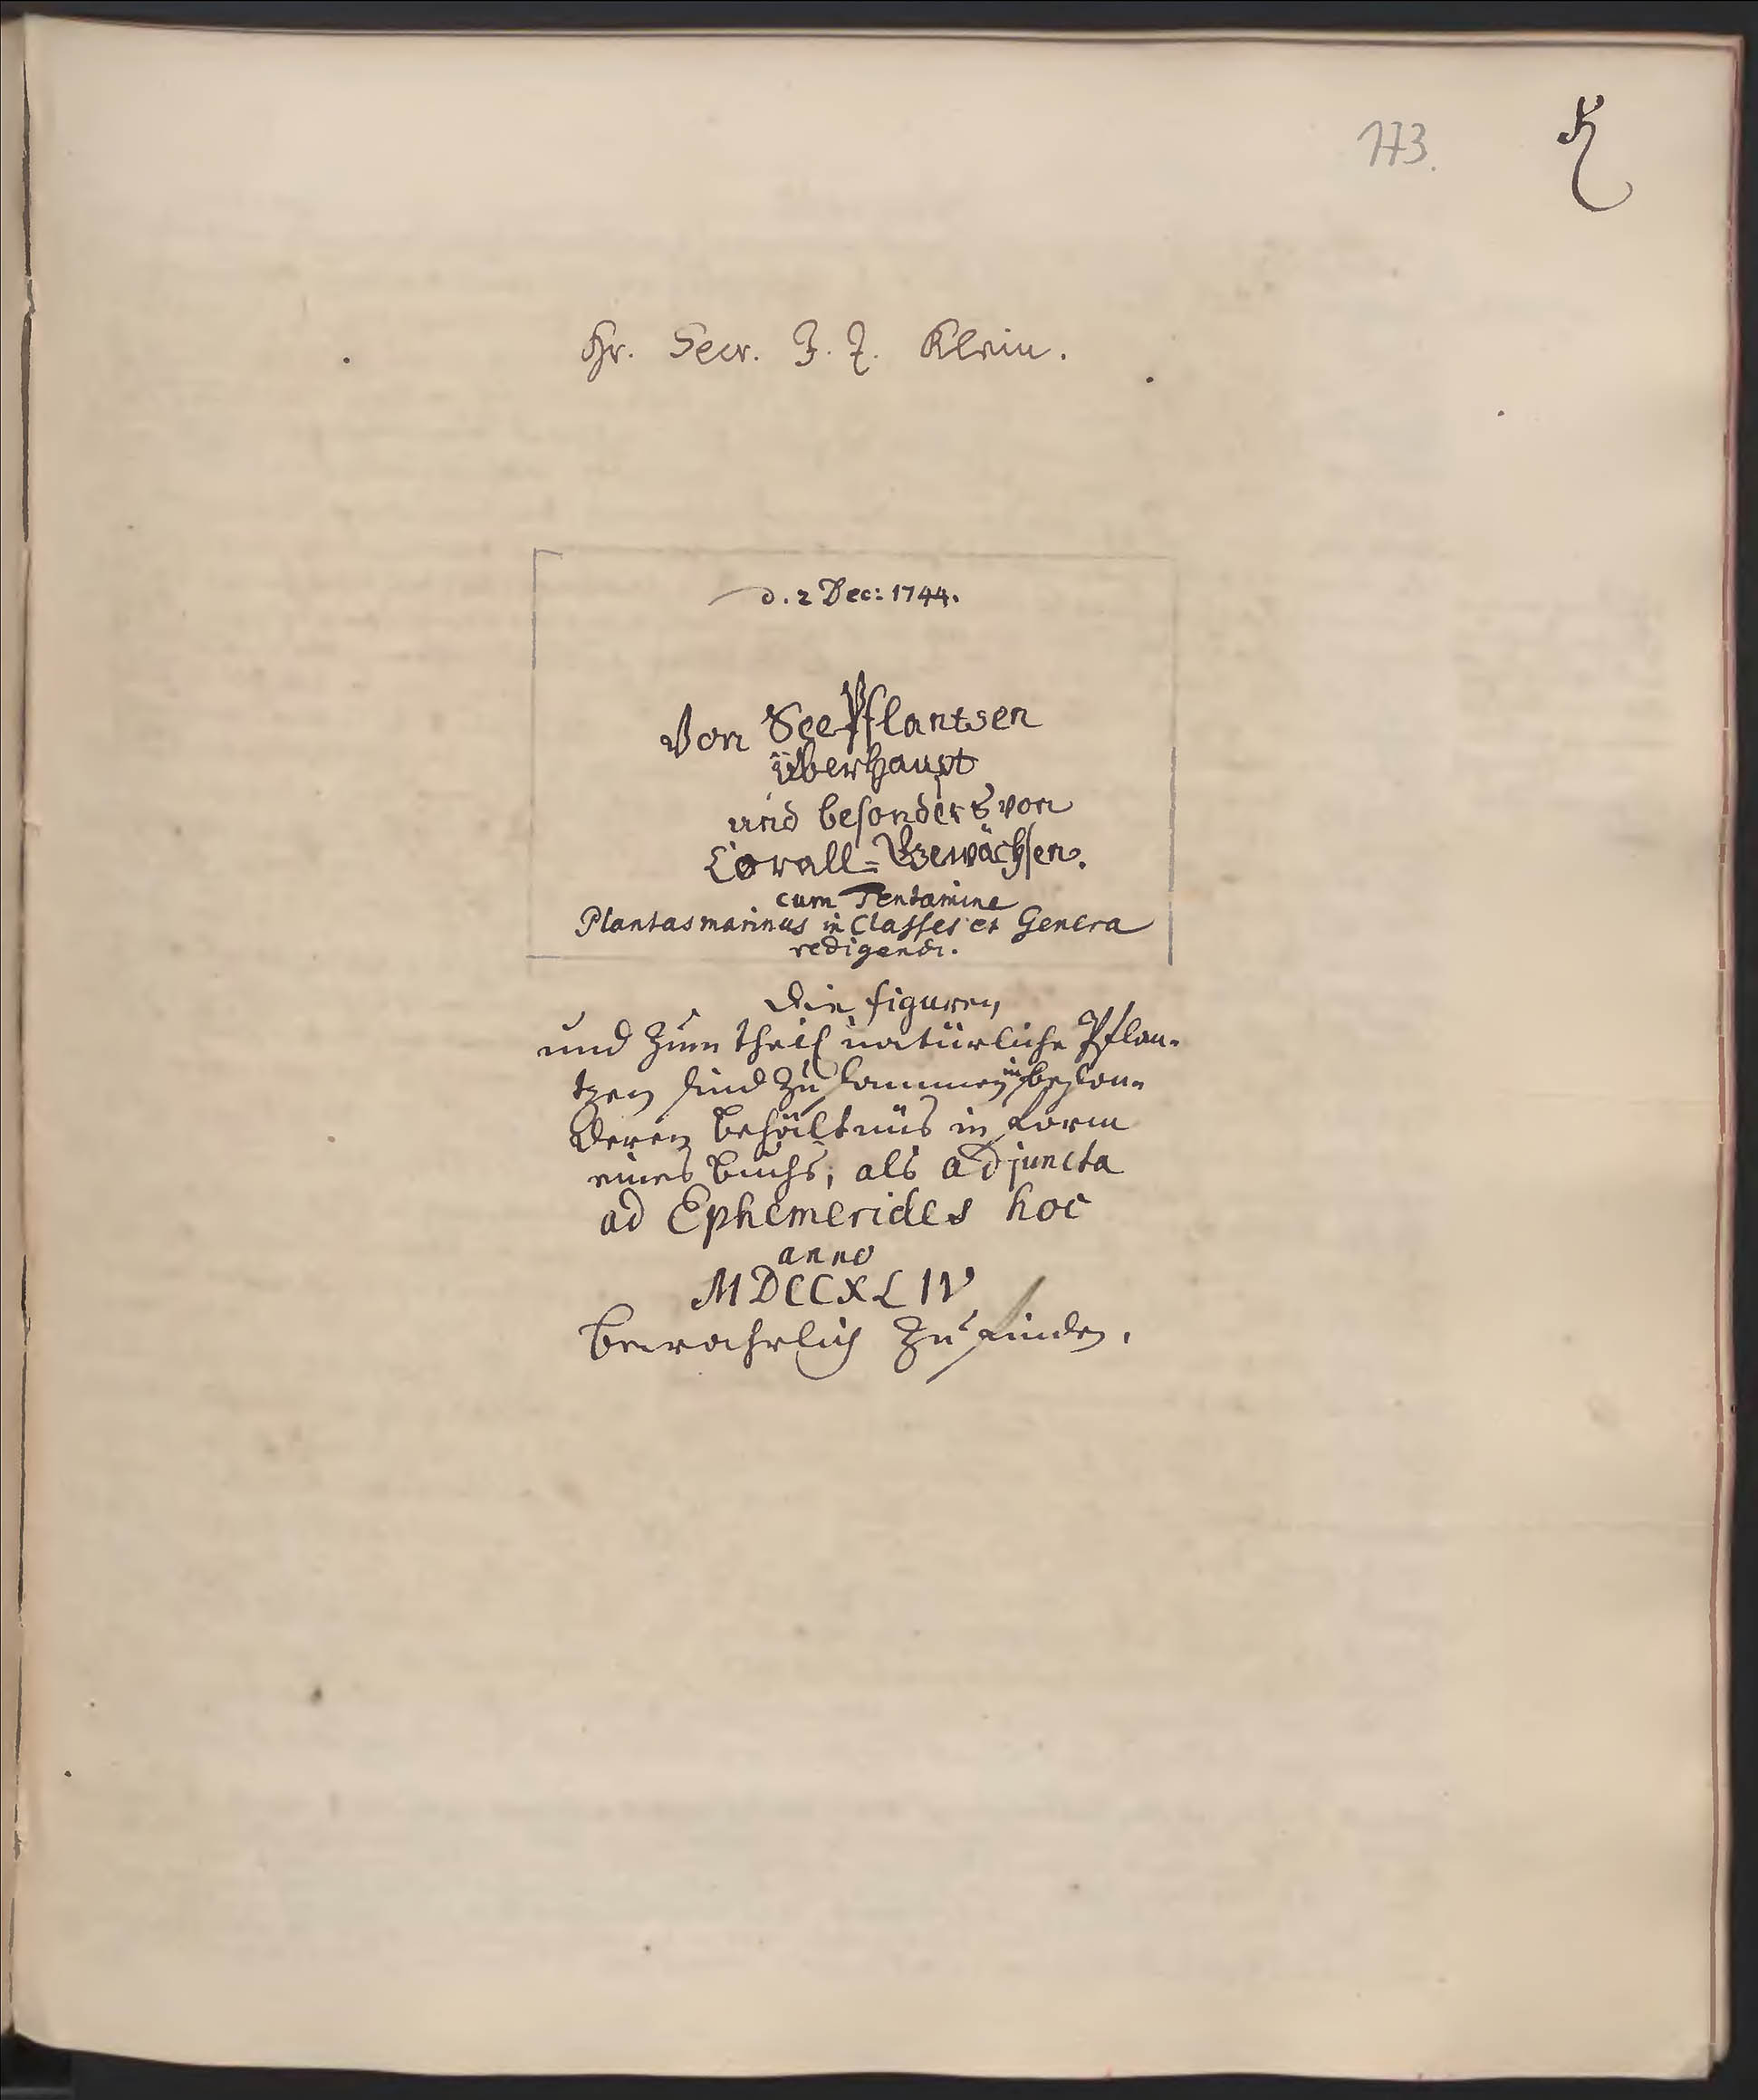 173.
K
Hr. Secr. J. T. Klein.
d. 2 Dec: 1744.
Von See Pflantsen
überhaupt
und besonders von
Corall=Gewächsen.
cum Tentamine
Plantas marinas in Classes et Genera
redigendi.
Die figuren
und zum theil natürliche Pflan-
tzen sind zusammen in beson-
deren behältnüs in Form
eines buchs, als adjuncta
ad Ephemerides hoc
anno
MDCCXLIV
bewahrlich zu finden.